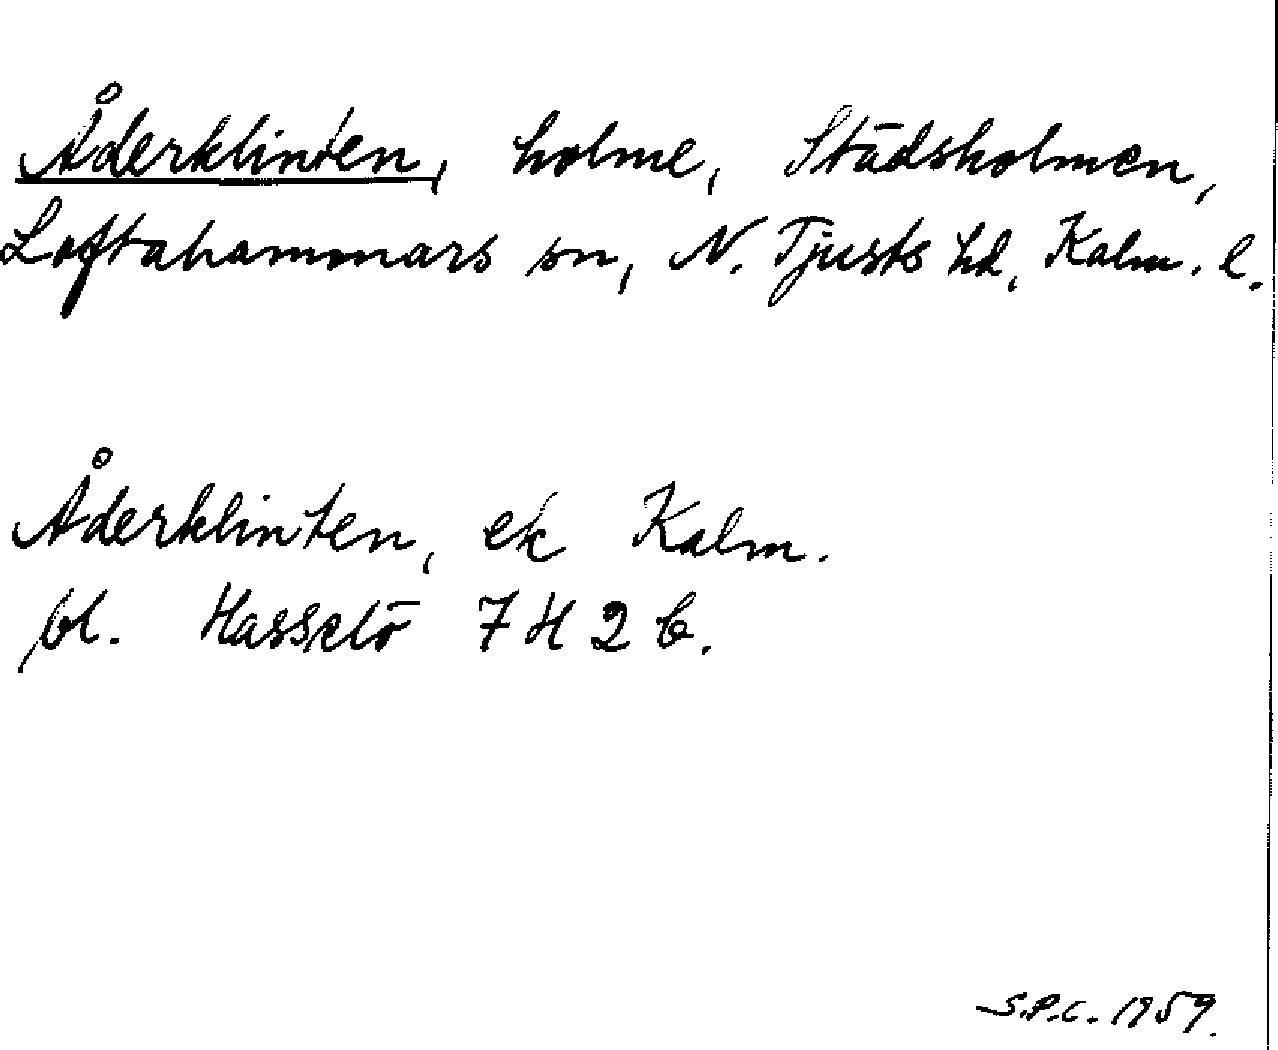 Åderklinten, holme, Städsholmen,
Loftahammars sn, N. Tjusts hd, Kalm. l.
Åderklinten, ek Kalm.
bl. Hasselö 7 H 2 b.
S.P.C. 1959.